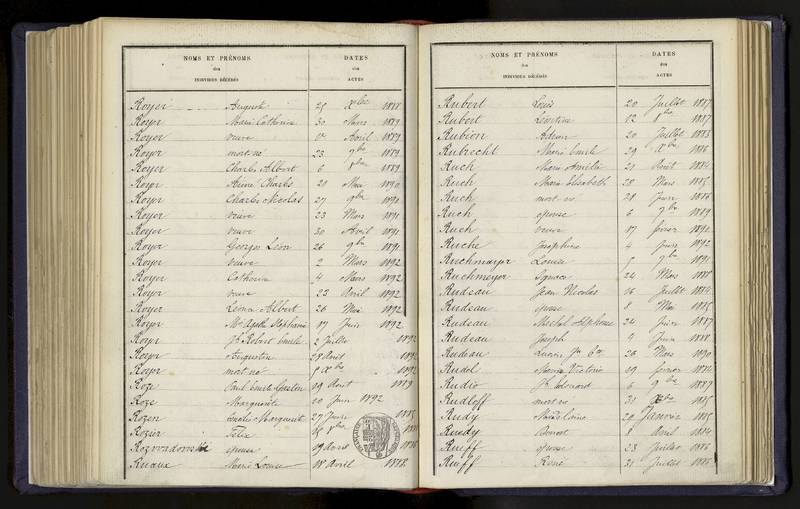 NOMS ET PRÉNOMS
des
INDIVIDUS DÉCÉDÉS
DATES
des
ACTES
Royer Auguste 25 Xbre 1888
Royer Marie Catherine 30 Mars 1889
Royer veuve Avril 1889
Royer mort-né 23 9bre 1889
Royer Charles Albert 6 1889
Royer Charles 20 Mai 1890
Royer Charles Nicolas 27 9bre 1890
Royer veuve 23 Mars 1891
Royer veuve 30 Avril 1891
Royer Georges Léon 26 9bre 1891
Royer veuve 2 Mars 1892
Royer Catherine 4 Mars 1892
Royer veuve 23 Avril 1892
Royer Albert 26 Mai 1892
Royer Stéphanie 17 Juin 1892
Royer Robert 2 Juillet 1892
Royer Augustin 28 Août 1892
Royer mort-né Xbre 1892
Roze Paul 19 Août 1889
Roze Marguerite 10 Juin 1892
Rozen Marguerite 27 1885
Rozier Félix
épouse 19
Ruaux Marie Louise 18 Avril 1886
NOMS ET PRÉNOMS
des
INDIVIDUS DÉCÉDÉS
DATES
des
ACTES
Rubert Louis 20 Juillet 1887
Rubert Léontine 12 8bre 1887
Rubion Adrien 20 Juillet 1883
Rubrecht Marie 29 Xbre 1886
Ruch Marie Amélie 21 Août 1884
Ruch Marie Elisabeth 28 Mars 1885
Ruch mort-né 28 Juin 1886
Ruch épouse 6 9bre 1889
Ruch veuve 17 1890
Ruche Joséphine 4 1892
Ruchmayer Louise 9bre 1891
Ruchmeyer Ignace 24 Mars 1888
Rudeau Jean Nicolas 16 Juillet 1884
Rudeau épouse 8 Mai 1885
Rudeau Michel Alphonse 24 1887
Rudeau Joseph 4 Juin 1888
Rudeau 26 Mars 1890
Rudel Marie Victoire 19 1884
Rudio Edouard 6 9bre 1889
Rudloff mort-né 31 Xbre 1885
Rudy Madeleine 20 Janvier 1885
Ruedy Benoit 8 Avril 1884
Rueff épouse 23 Juillet 1886
Rueff René 31 Juillet 1886